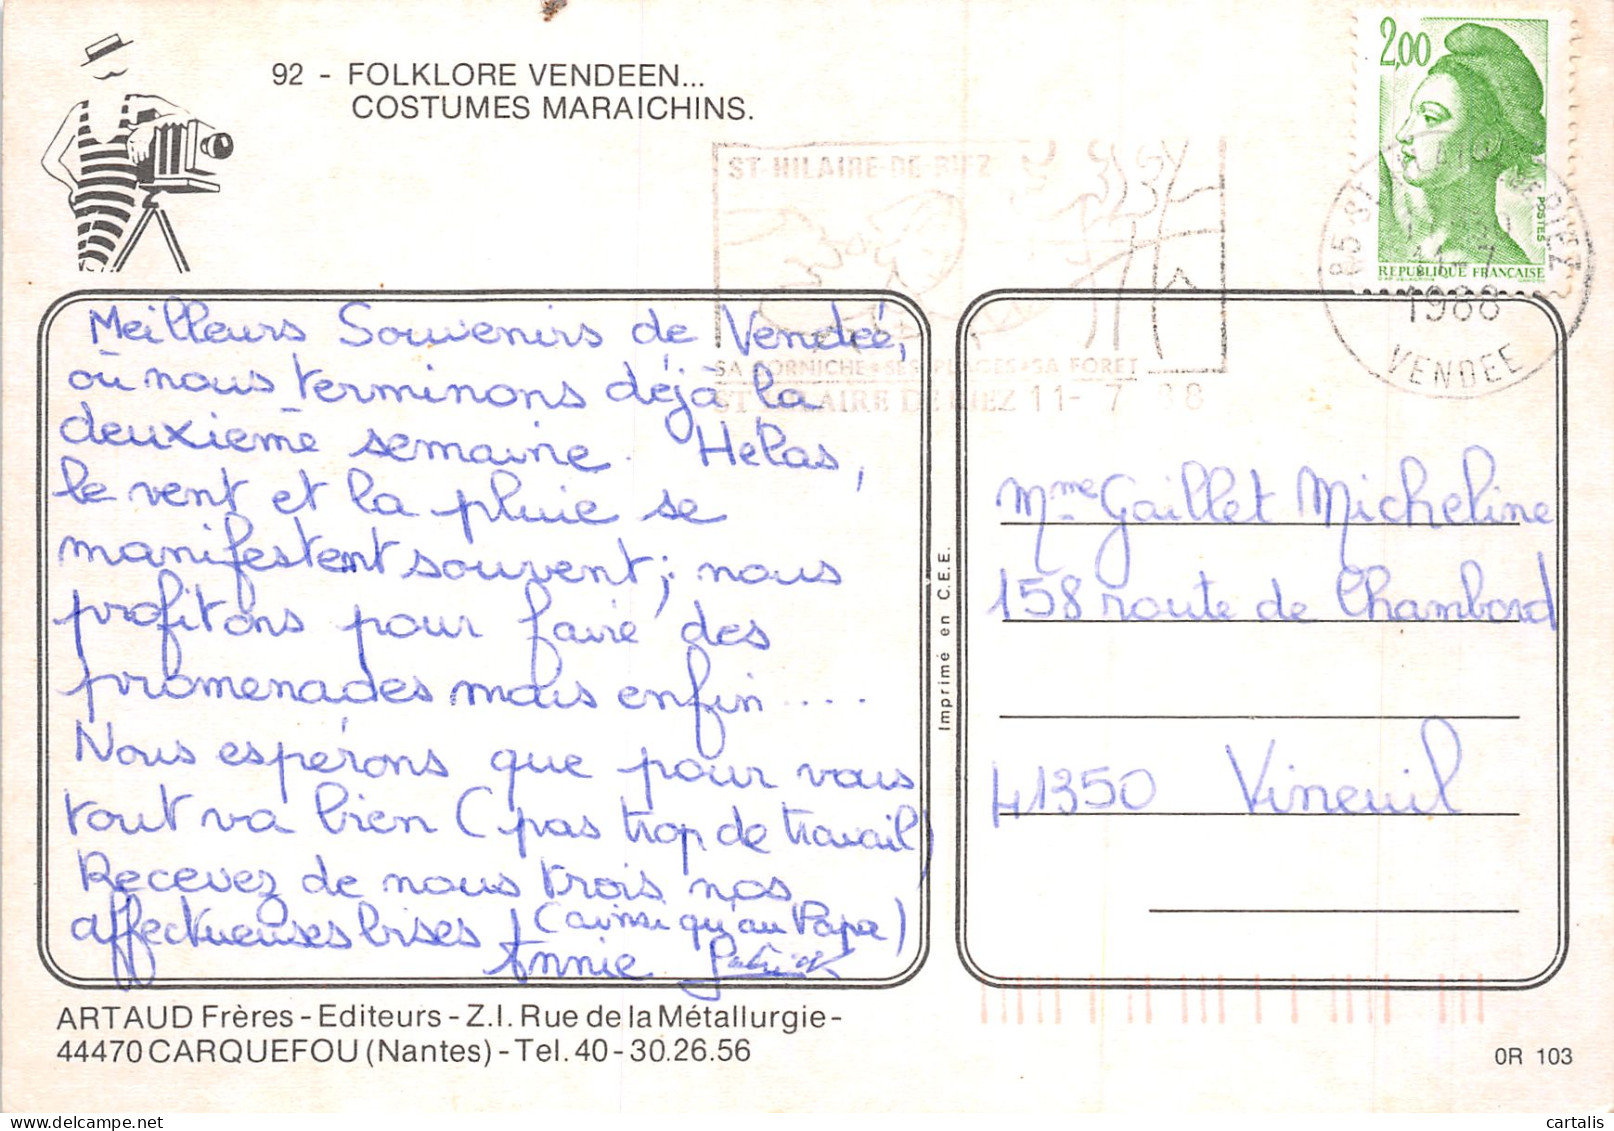 92 - FOLKLORE VENDEEN...
COSTUMES MARAICHINS.
2,00
POSTES
REPUBLIQUE FRANÇAISE
ST-HILAIRE-DE-RIEZ
SA CORNICHE • SES PLAGES • SA FORET
ST HILAIRE DE RIEZ 11- 7 88
11-7
1988
VENDEE
Meilleurs Souvenirs de Vendée,
où nous terminons déjà la
deuxième semaine. Hélas,
le vent et la pluie se
manifestent souvent; nous
profitons pour faire des
promenades mais enfin ....
Nous espérons que pour vous
tout va bien (pas trop de travail)
Recevez de nous trois nos
affectueuses bises ! (ainsi qu'au Papa)
Annie Patrick
Imprimé en C.E.E.
Mme Gaillet Micheline
158 route de Chambord
41350 Vineuil
ARTAUD Frères - Editeurs - Z.I. Rue de la Métallurgie -
44470 CARQUEFOU (Nantes) - Tel. 40 - 30.26.56
0R 103
cartalis